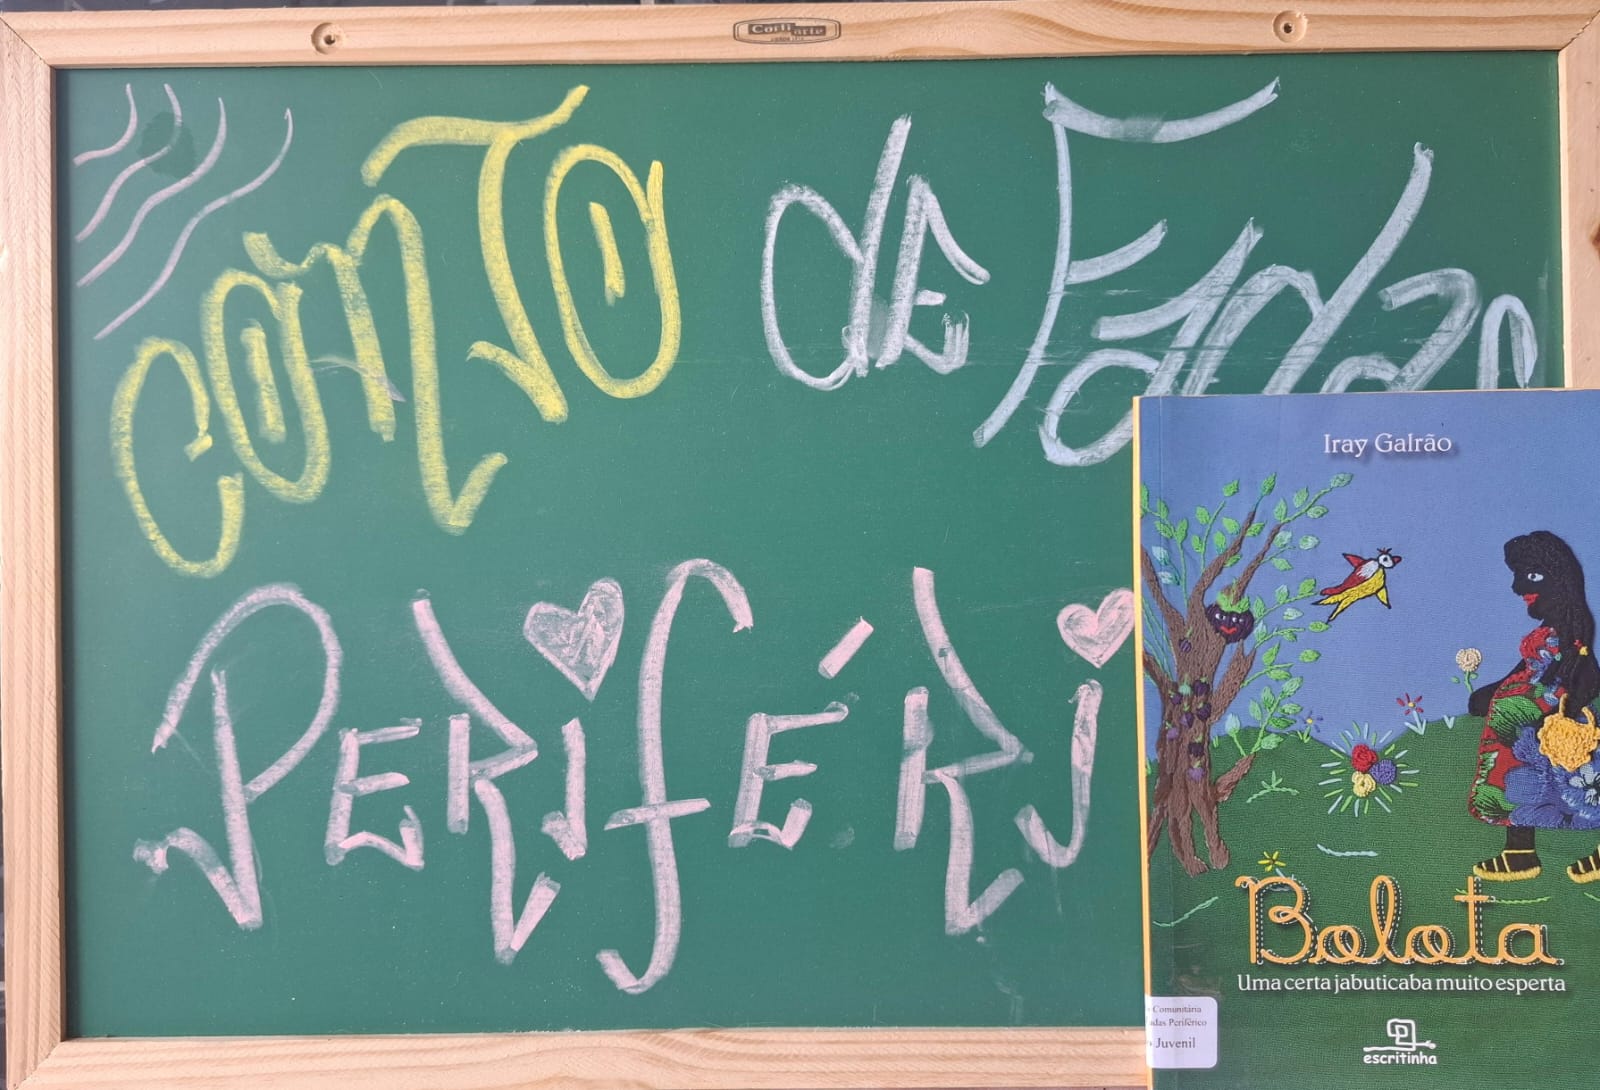 Cortiarte
CONTO de Fadas
PERIFÉRI
Iray Galrão
Bolota
Uma certa jabuticaba muito esperta
Comunitária
adas Periférico
Juvenil
escritinha